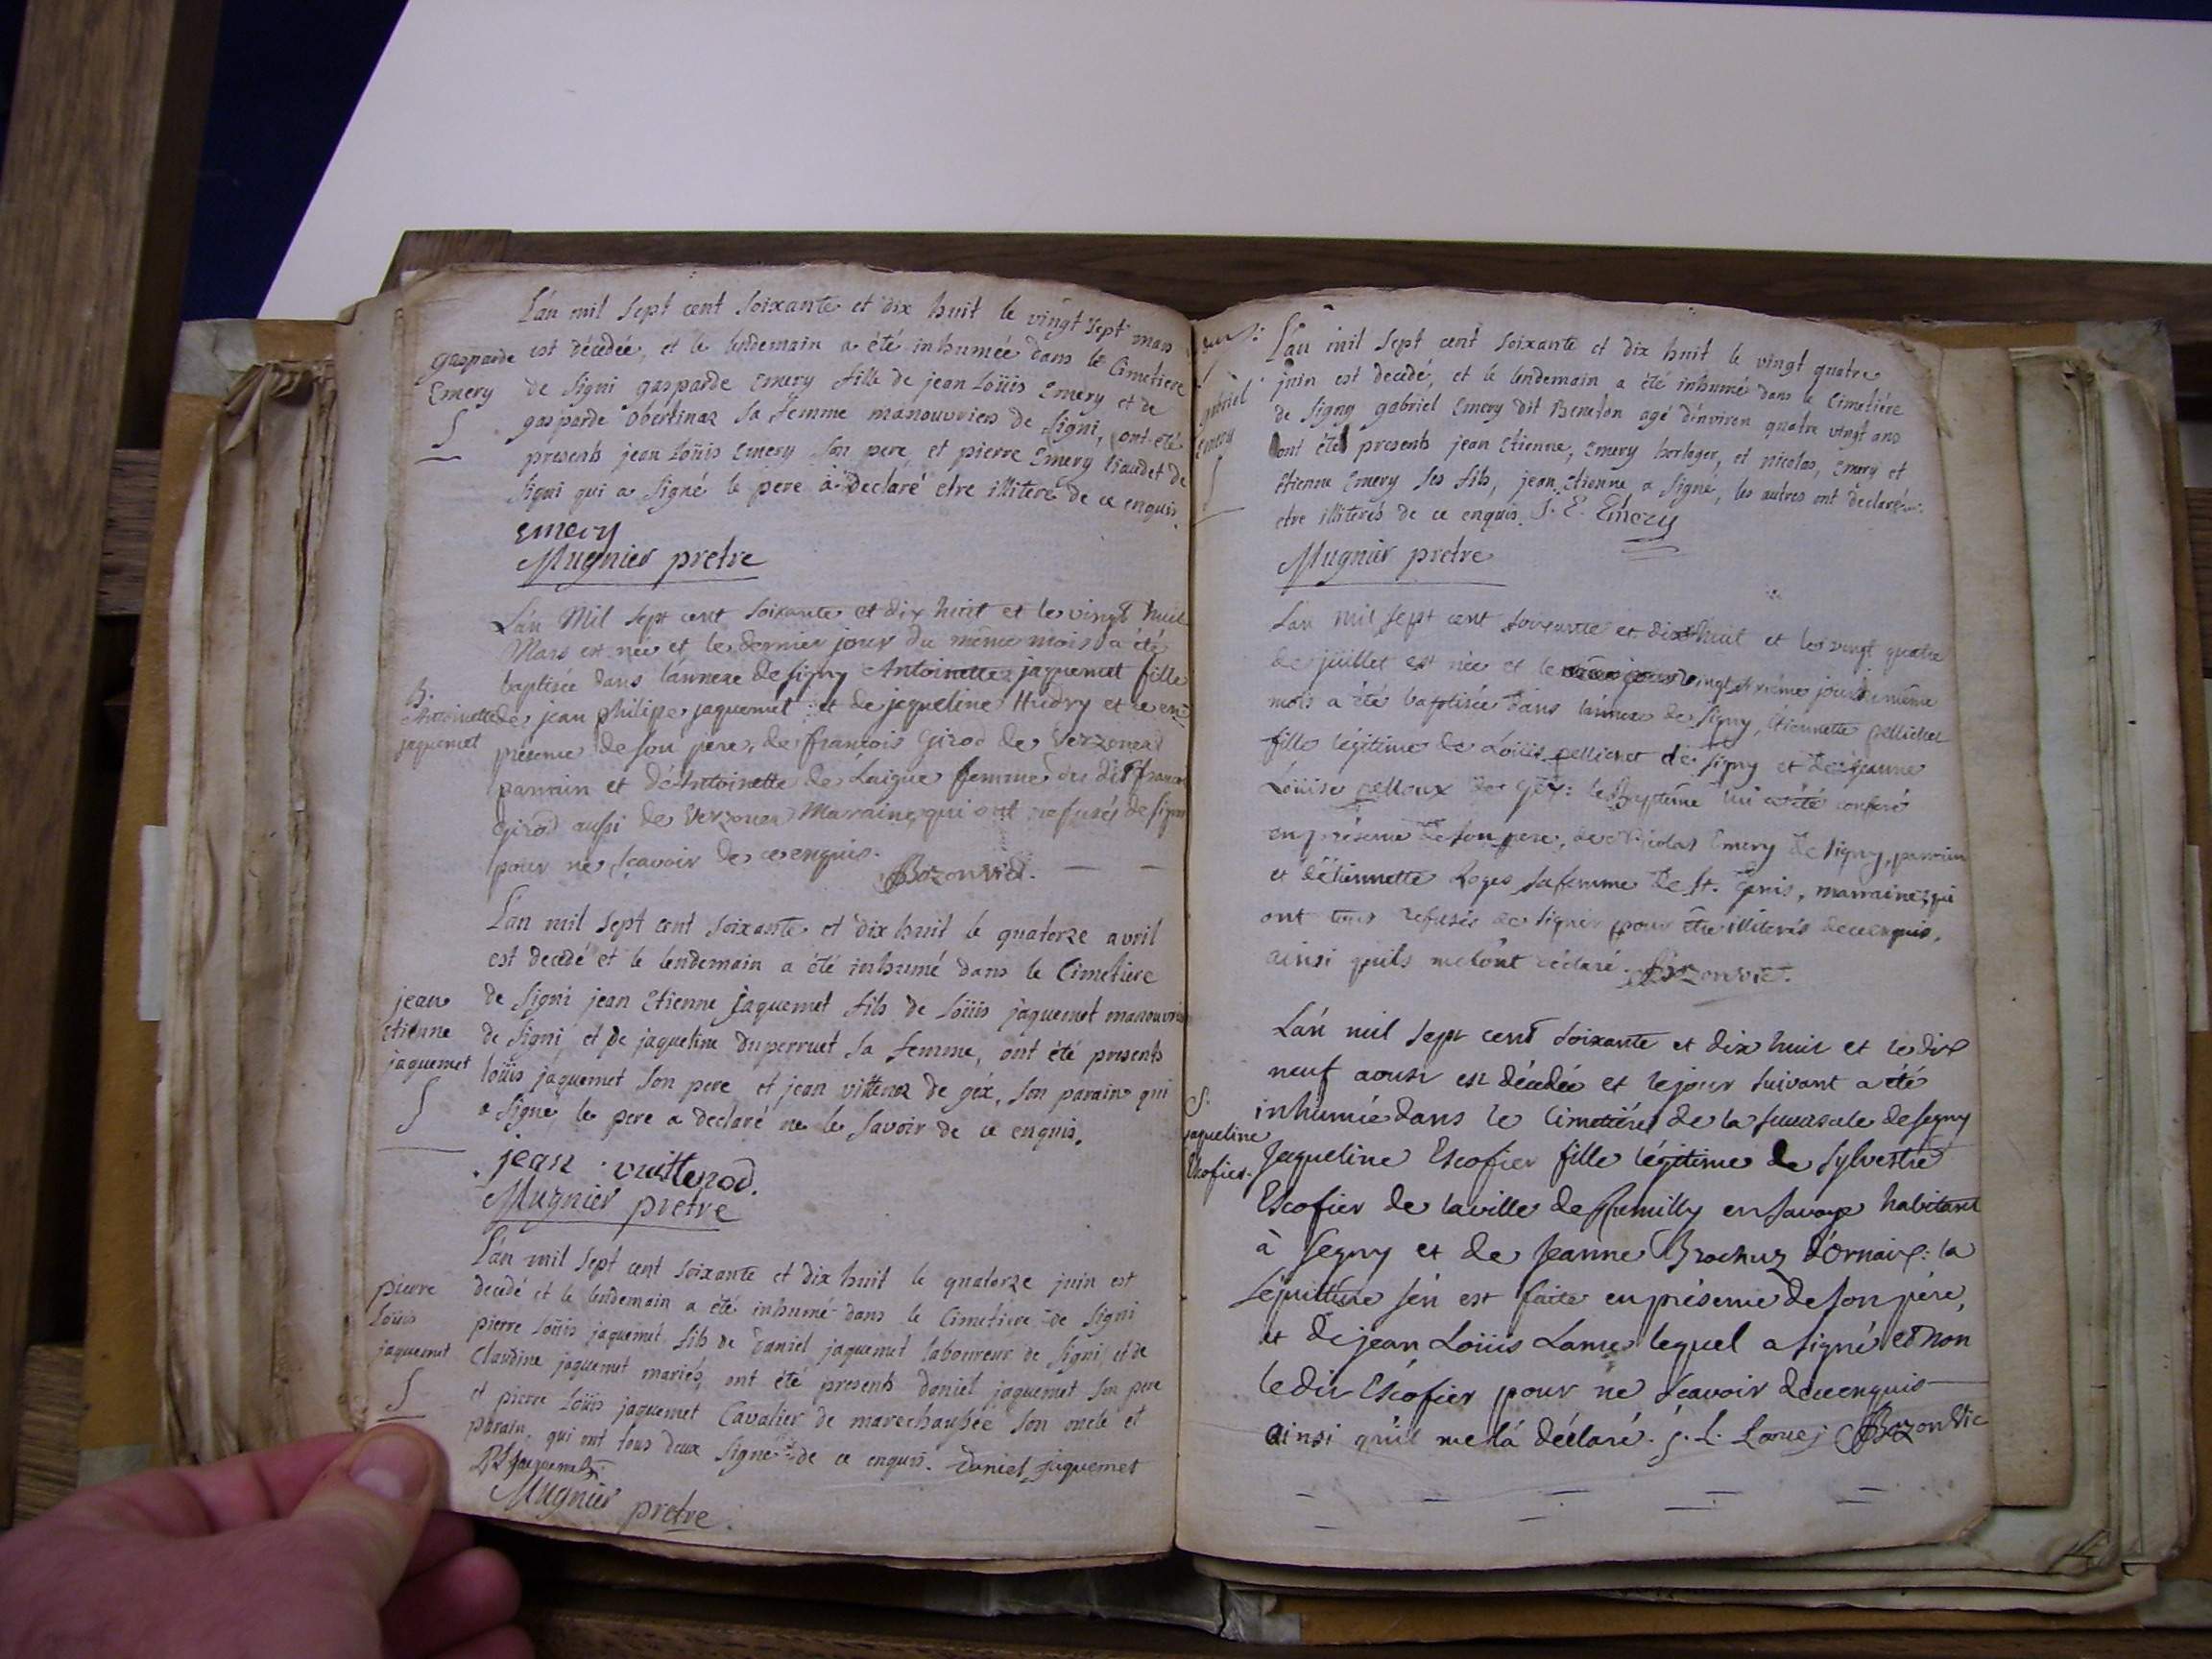 L'an mil sept cent soixante et dix huit le vingt sept mars
est décedée, et le lendemain a été inhumée dans le Cimetiere
de Signi gasparde Emery fille de jean Loüis Emery et de
gasparde Obertinaz sa femme manouvriers de Signi, ont été
presents jean Loüis Emery son pere, et pierre Emery liaudet de
Signi qui a signé le pere a declaré etre illiteré de ce enquis.
gasparde
Emery
S
emery
Mugnier pretre
L'an Mil sept cent soixante et dix huit et le vingt huit
Mars est née et le dernier jour du même mois a été
baptisée dans l'annexe de signy Antoinette jaquemet fille
de jean philipe jaquemet et de jaqueline Hudry et ce en
présence de son pere, de françois Girod de Verzonea
parrain et d'Antoinette de Laigue femme du dit francois
Girod aussi de Verzonea Marraine qui ont refusés de signer
pour ne sçavoir de ce enquis.
Bozonvict.
B.
Antoinette
jaquemet
L'an mil sept cent soixante et dix huit le quatorze avril
est decedé et le lendemain a été inhumé dans le Cimetiere
de Signi jean Etienne jaquemet fils de Loüis jaquemet manouvrier
de Signi et de jaqueline Duperruet sa femme, ont été presents
loüis jaquemet son pere et jean vittenoz de gex, son parain qui
a signé, le pere a declaré ne le savoir de ce enquis.
jean
Etienne
jaquemet
S
jean vuittenod.
Mugnier pretre
L'an mil sept cent soixante et dix huit le quatorze juin est
decedé et le lendemain a été inhumé dans le Cimetiere de Signi
pierre loüis jaquemet fils de Daniel jaquemet laboureur de Signi et de
Claudine jaquemet mariés, ont été presents daniel jaquemet son pere
et pierre Loüis jaquemet Cavalier de marechaussée son oncle et
parain, qui ont tous deux signé de ce enquis. Daniel jaquemet
pierre
Loüis
jaquemet
S
PL jaquemet
Mugnier pretre.
L'an mil sept cent soixante et dix huit le vingt quatre
juin est decedé, et le lendemain a été inhumé dans le Cimetiére
de Signy gabriel Emery dit Beneton agé d'environ quatre vingt ans
ont étés presents jean Etienne, Emery horloger, et nicolas, Emery et
Etienne Emery ses fils, jean Etienne a signé, les autres ont declaré
etre illiterés de ce enquis. J. E. Emery
gabriel
Emery
S
Mugnier pretre
L'an mil sept cent soixante et dix huit et le vingt quatre
de juillet est née et le vingt sixième jour du même
mois a été baptisée dans l'annexe de signy, étiennette pellichet
fille légitime de Loüis pellichet de signy et de jeanne
Loüise pelloux de Gex: le Baptême lui a été conferé
en présence de son pere, de Nicolas Emery de signy, parrain
et d'étiennette Roges sa femme de St. Genis, marraine, qui
ont tous refusés de signer pour être illiterés de ce enquis,
ainsi qu'ils me l'ont déclaré. Bozonvict.
L'an mil sept cent soixante et dix huit et le dix
neuf aoust est décédée et le jour suivant a été
inhumée dans le Cimetiére de la succursale de segny
Jaqueline Escofier fille légitime de Sylvestre
Escofier de la ville de Rumilly en Savoye habitant
à Segny et de Jeanne Brochuz d'Ornaix: la
sépulture s'en est faite en présence de son père,
et de jean Loüis Lame lequel a signé et non
le dit Escofier pour ne sçavoir de ce enquis
ainsi qu'il me l'a déclaré. J. L. Lame Bozonvic
S.
jaqueline
Escofier.